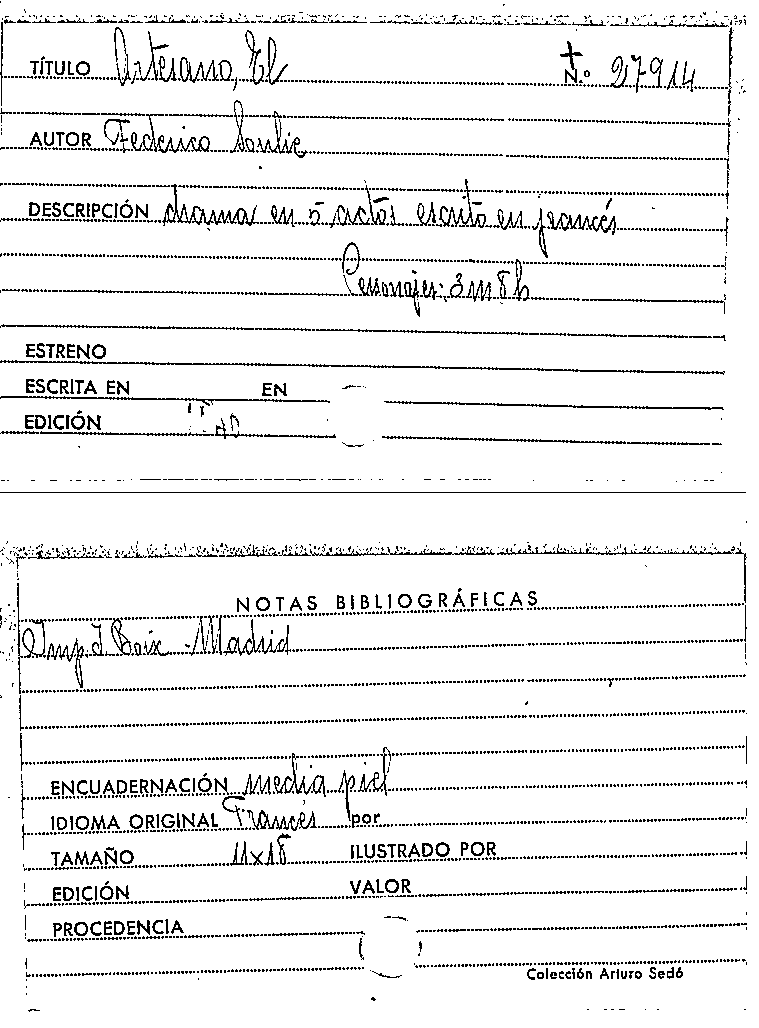 TÍTULO Artesano, El N.º 27914
AUTOR Federico Soulié
DESCRIPCIÓN drama en 5 actos escrito en francés
Personajes: 3m 8h
ESTRENO
ESCRITA EN EN
EDICIÓN
NOTAS BIBLIOGRÁFICAS
Imp I. Boix - Madrid
ENCUADERNACIÓN media piel
IDIOMA ORIGINAL Francés por
TAMAÑO 11x18 ILUSTRADO POR
EDICIÓN VALOR
PROCEDENCIA
Colección Arturo Sedó